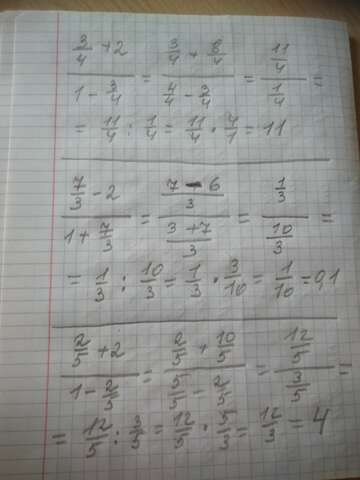 (3/4 + 2)/(1 - 3/4) = (3/4 + 8/4)/(4/4 - 3/4) = (11/4)/(1/4) =
= 11/4 : 1/4 = 11/4 · 4/1 = 11
(7/3 - 2)/(1 + 7/3) = ((7 - 6)/3)/((3 + 7)/3) = (1/3)/(10/3) =
= 1/3 : 10/3 = 1/3 · 3/10 = 1/10 = 0,1
(2/5 + 2)/(1 - 2/5) = (2/5 + 10/5)/(5/5 - 2/5) = (12/5)/(3/5) =
= 12/5 : 3/5 = 12/5 · 5/3 = 12/3 = 4